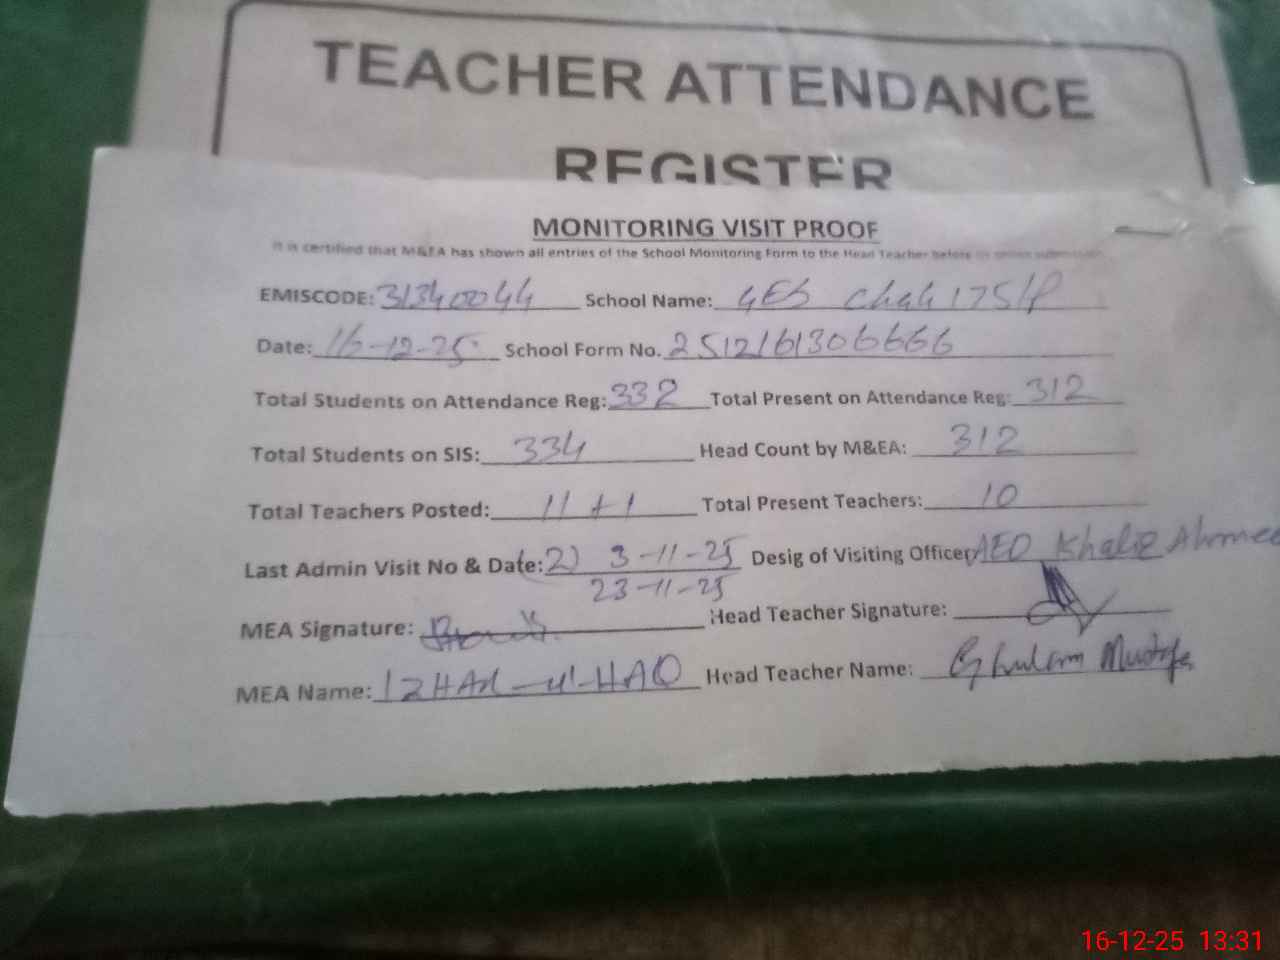 TEACHER ATTENDANCE
REGISTER
MONITORING VISIT PROOF
It is certified that M&EA has shown all entries of the School Monitoring Form to the Head Teacher before
EMISCODE: 31340044 School Name: GES Chak 175/P
Date: 16-12-25 School Form No. 2512161306666
Total Students on Attendance Reg: 332 Total Present on Attendance Reg: 312
Total Students on SIS: 334 Head Count by M&EA: 312
Total Teachers Posted: 11+1 Total Present Teachers: 10
Last Admin Visit No & Date: (2) 3-11-25 Desig of Visiting Officer AEO Ahmed
23-11-25
MEA Signature: Head Teacher Signature:
MEA Name: IZHAR-ul-HAQ Head Teacher Name: Ghulam Mustafa
16-12-25 13:31